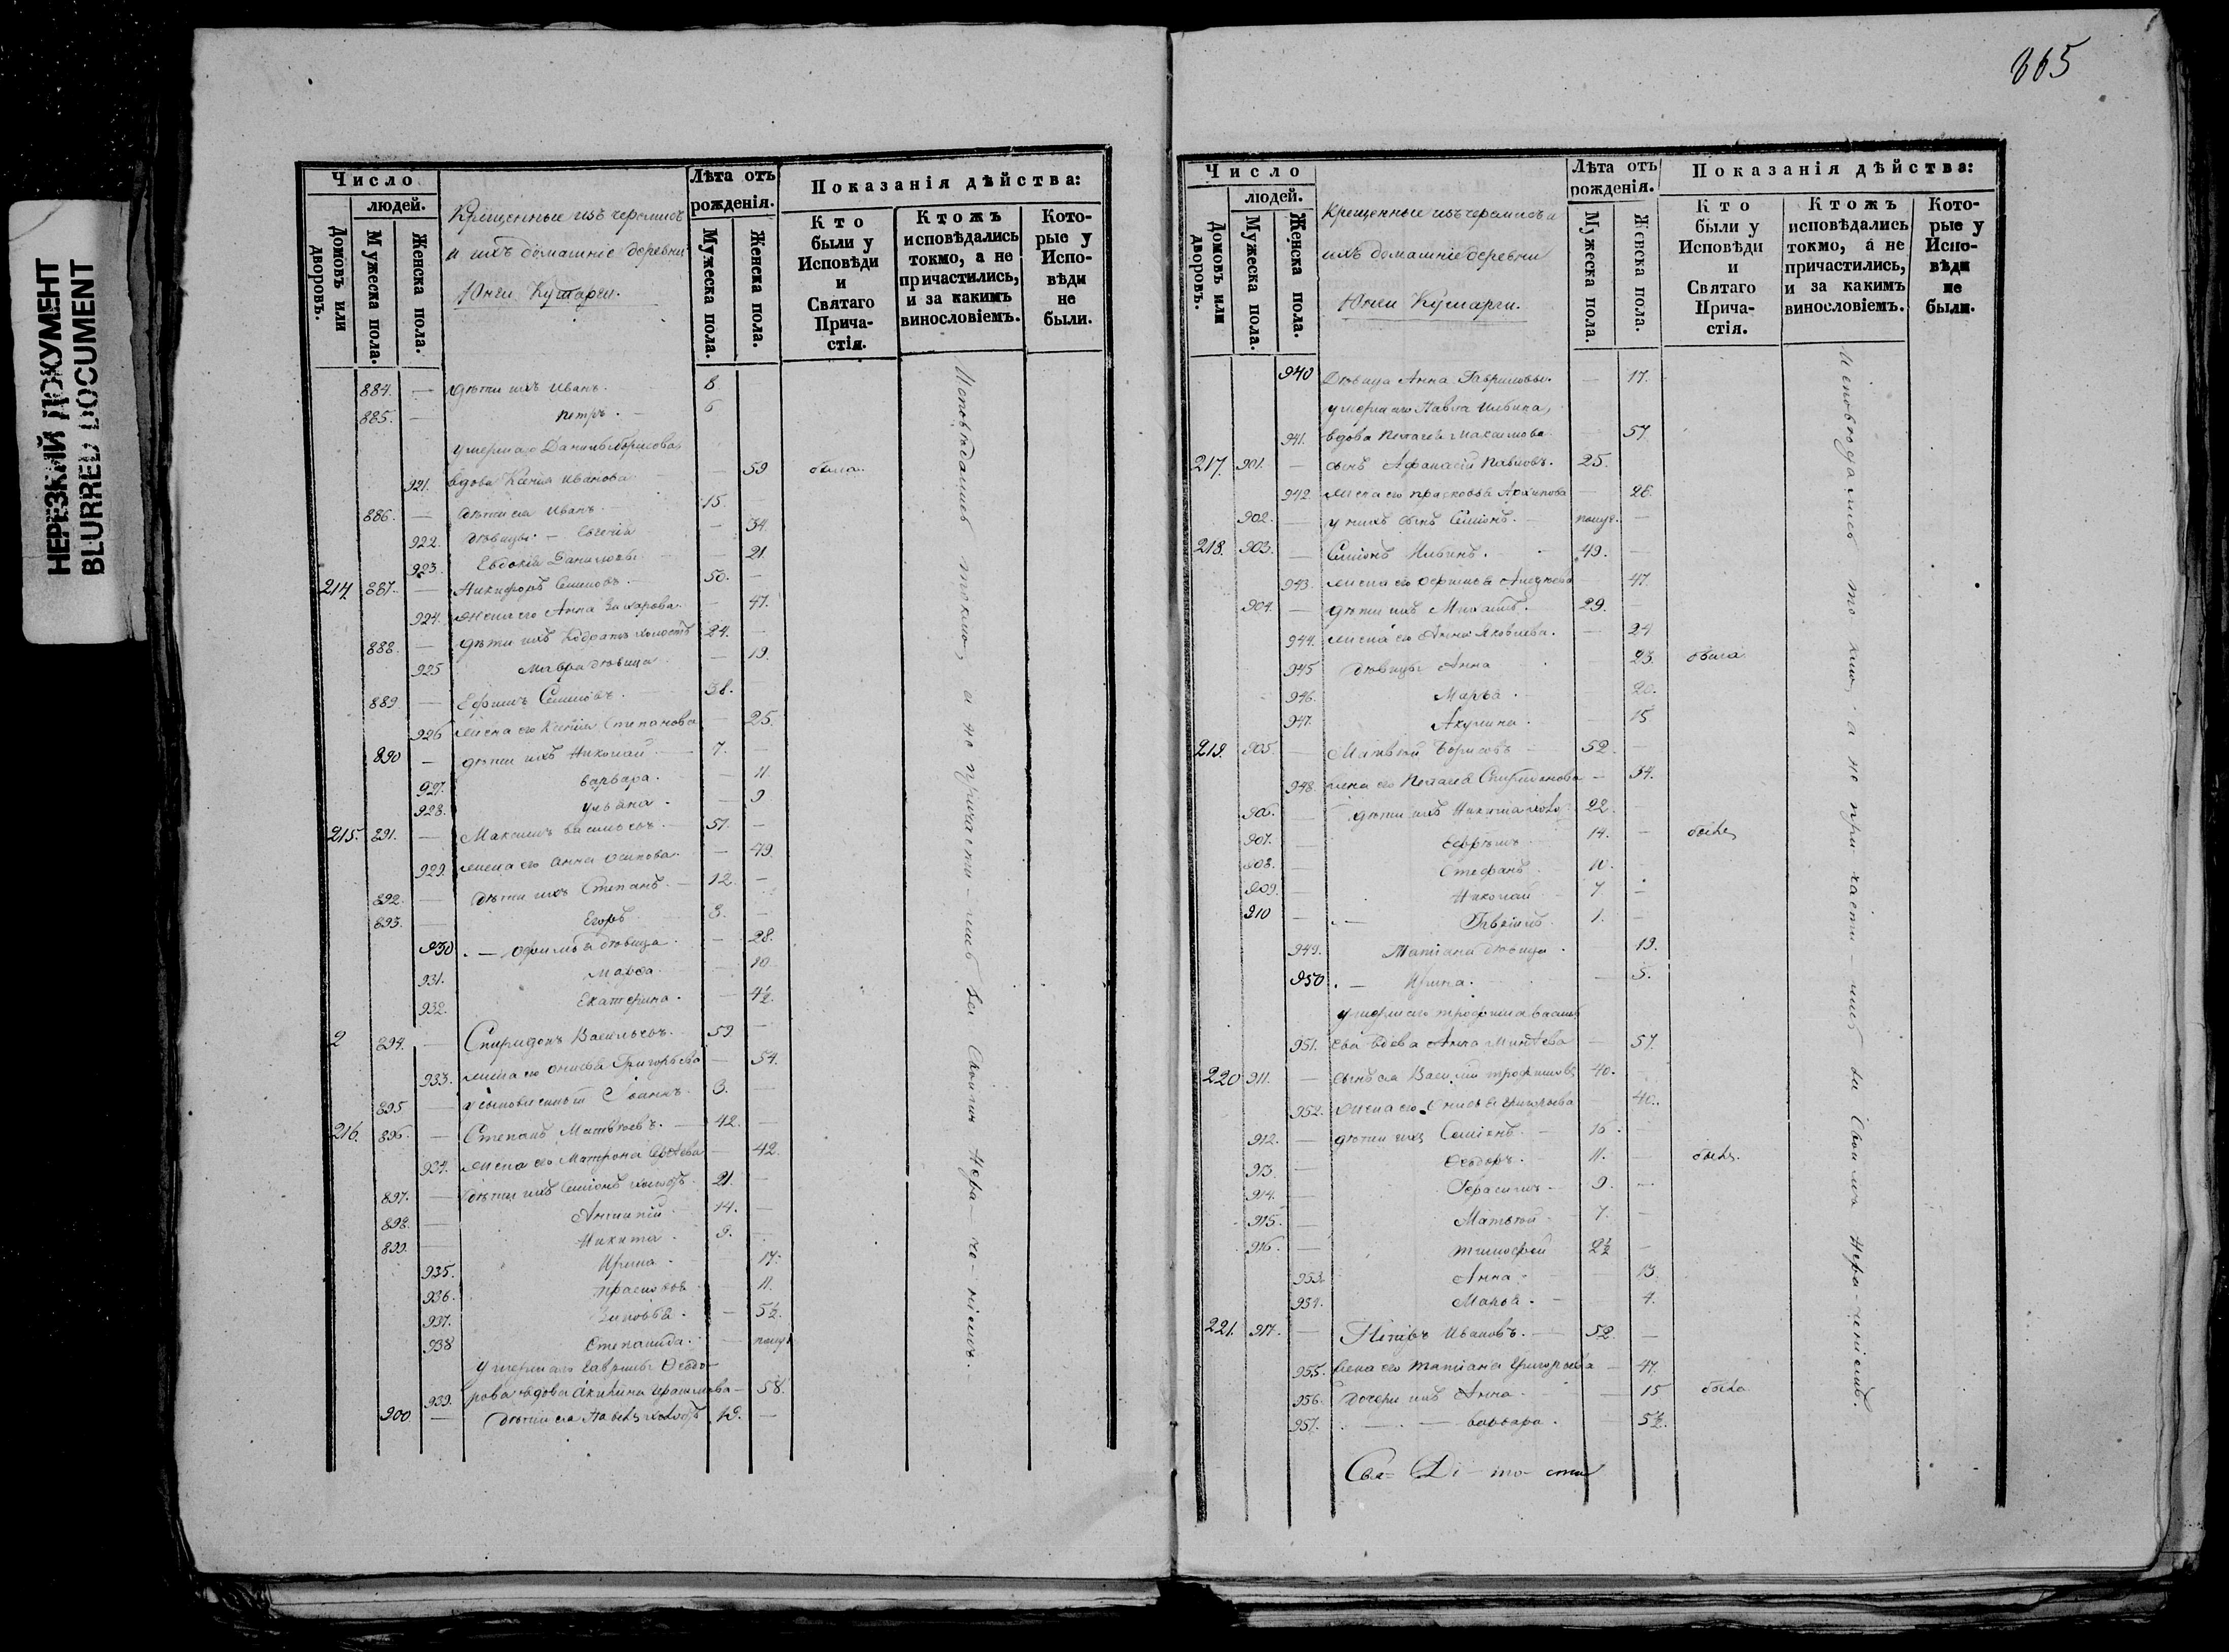 НЕРЕЗКИЙ ДОКУМЕНТ
BLURRED DOCUMENT
Число
людей.
Домовъ или дворовъ.
Мужеска пола.
Женска пола.
Крещенные изъ черемисъ
и ихъ домашніе деревни
Юнги Кушарги.
Лѣта отъ рожденія.
Мужеска пола.
Женска пола.
Показанія дѣйства:
Кто были у Исповѣди и Святаго Причастія.
Ктожъ исповѣдались токмо, а не причастились, и за какимъ винословіемъ.
Которые у Исповѣди не были.
884. — дѣти ихъ Иванъ. 8
885. — Петръ. — 6
умершаго Данилы Борисова
921. вдова Ксенія Иванова — 59 была.
886. — дѣти ея Иванъ. 15.
922. дѣвицы — Евгенія — 34.
923. Евдокія Даниловы — 21.
214 887. — Никифоръ Семеновъ. 50. —
924. жена его Анна Захарова. — 47.
888. — дѣти ихъ Кодратъ холостъ 24. —
925 Мавра дѣвица — 19.
889. — Ефимъ Семеновъ. 38.
926 жена его Ксенія Степанова — 25.
890 — дѣти ихъ Николай — 7. —
927. Варвара. — 11.
928. Ульяна. — 9
215. 891. — Максимъ Васильевъ. 57. —
929. жена его Анна Осипова. — 49.
892. — дѣти ихъ Степанъ. — 12. —
893. — Егоръ 3. —
930. — Офимья дѣвица. — 28.
931. Марфа. — 10.
932. Екатерина. — 4½.
2 894. — Спиридонъ Васильевъ. 59. —
933. жена его Онисья Григорьева — 54.
895 — 3.
216. 896. — Степанъ Матвѣевъ. — 42. —
934. жена его Матрона — 42.
897. — дѣти ихъ Семіонъ холостъ. 21. —
898. — 14. —
899. — Никита. 9. —
935. Ирина. — 17.
936. Прасковья — 11.
937. Зиновья. — 5½.
938 Степанида. — полуг.
умершаго Гаврилы Ѳедо-
939. рова вдова Акилина Герасимова — 58.
900 — дѣти ея Павелъ холостъ 19. —
Исповѣдались токмо, а не причасти-лись за своимъ нера-че-ніемъ.
665
Число
людей.
Домовъ или дворовъ.
Мужеска пола.
Женска пола.
Крещенные изъ черемисъ и
ихъ домашніе деревни
Юнги Кушарги.
Лѣта отъ рожденія.
Мужеска пола.
Женска пола.
Показанія дѣйства:
Кто были у Исповѣди и Святаго Причастія.
Ктожъ исповѣдались токмо, а не причастились, и за какимъ винословіемъ.
Которые у Исповѣди не были.
940 Дѣвица Анна Гаврилова. — 17.
умершаго Павла Ильина,
941. вдова Пелагея Максимова — 57
217. 901. — сынъ Афанасій Павловъ. 25.
942. жена его Прасковья Архипова — 26.
902. — у нихъ сынъ Семіонъ. — полуг. —
218. 903. — Семіонъ Ильинъ. — 49. —
943. жена его Офимья — 47.
904. — дѣти ихъ Михаилъ. — 29. —
944. жена его Анна Яковлева. — 24
945 дѣвицы Анна 23. была
946. Марья. 20.
947. Акулина. 15
219. 905. — Матвѣй Борисовъ — 52. —
948. жена его Пелагея Спиридонова — 54.
906. — дѣти ихъ Никита 22. —
907. — Ефремъ 14. — былъ
908. — Стефанъ 10. —
909. — Николай 7 —
910 — 1. —
949. Татіана дѣвица. 19.
950. — Ирина. — 5.
умершаго Трофима Василь
951. ева вдова Анна — 57.
220 911. — сынъ ея Василій Трофимовъ 40.
952. жена его Онисья Григорьева 40.
912. — дѣти ихъ Семіонъ. — 16.
913. — Ѳедоръ. 11. — былъ.
914. — Герасимъ — 9. —
915. — Матвѣй 7. —
916. — Тимофей 2½ —
953. Анна. — 13.
954. Марья. — 4.
221. 917. — Петръ Ивановъ. — 52. —
955. жена его Татіана Григорьева — 47.
956. дочери ихъ Анна. — 15 была
957. — Варвара. 5½.
Исповѣдались токмо, а не при-части-лись за своимъ нера-ченіемъ.